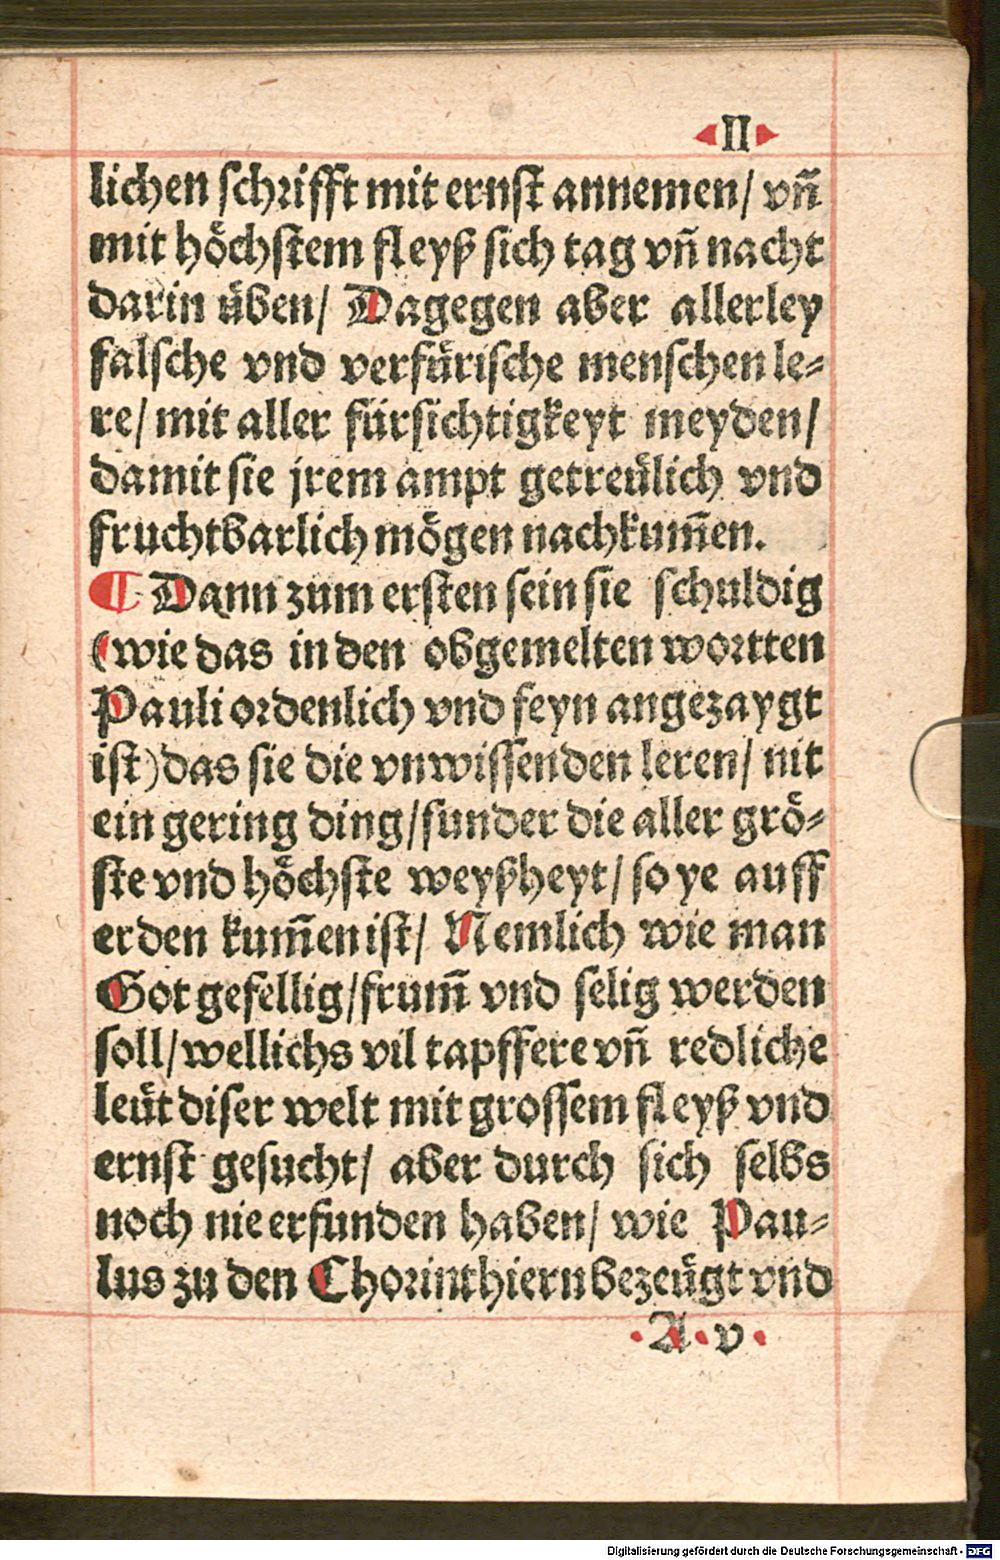 II
lichen schrifft mit ernst annemen/ vn̄
mit hoͤchstem fleyß sich tag vn̄ nacht
darin uͤben/ Dagegen aber allerley
falsche vnd verfuͤrische menschen le⸗
re/ mit aller fuͤrsichtigkeyt meyden/
damit sie jrem ampt getreuͤlich vnd
fruchtbarlich moͤgen nachkum̄en.
¶ Dann zum ersten sein sie schuldig
(wie das in den obgemelten wortten
Pauli ordenlich vnd feyn angezaygt
ist) das sie die vnwissenden leren/ nit
ein gering ding/ sunder die aller groͤ⸗
ste vnd hoͤchste weyßheyt/ so ye auff
erden kum̄en ist/ Nemlich wie man
Got gefellig/ frum̄ vnd selig werden
soll/ wellichs vil tapffere vn̄ redliche
leuͤt diser welt mit grossem fleyß vnd
ernst gesucht/ aber durch sich selbs
noch nie erfunden haben/ wie Pau⸗
lus zu den Chorinthiern bezeuͤgt vnd
A v
Digitalisierung gefördert durch die Deutsche Forschungsgemeinschaft - DFG